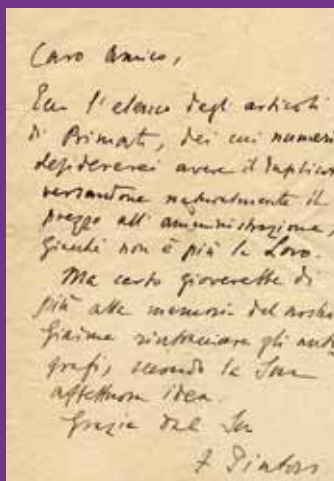 Caro Amico,
Ecco l'elenco degli articoli
di Primato, dei cui numeri
desidererei avere il duplicato
versandone naturalmente il
prezzo all'amministrazione,
giacché non è più la Loro.
Ma certo gioverebbe di
più alla memoria del nostro
Giaime rintracciare gli auto
grafi, secondo la Sua
affettuosa idea.
Grazie dal Suo
F Pintor